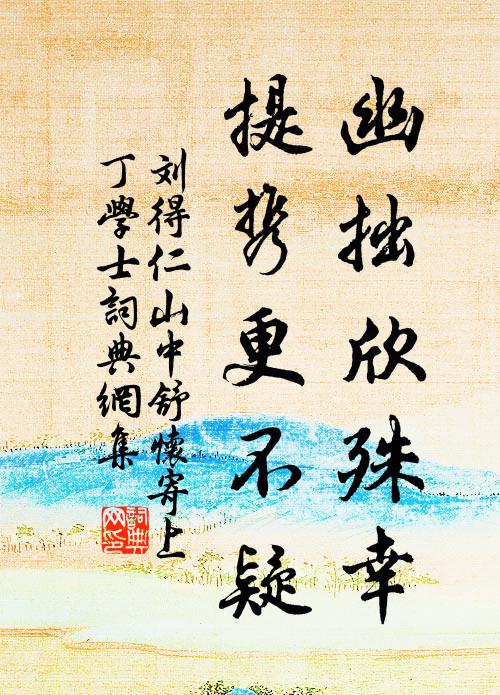 幽拙欣殊幸
提携更不疑
刘得仁山中舒懷寄上
丁學士詞典網集
詞典网